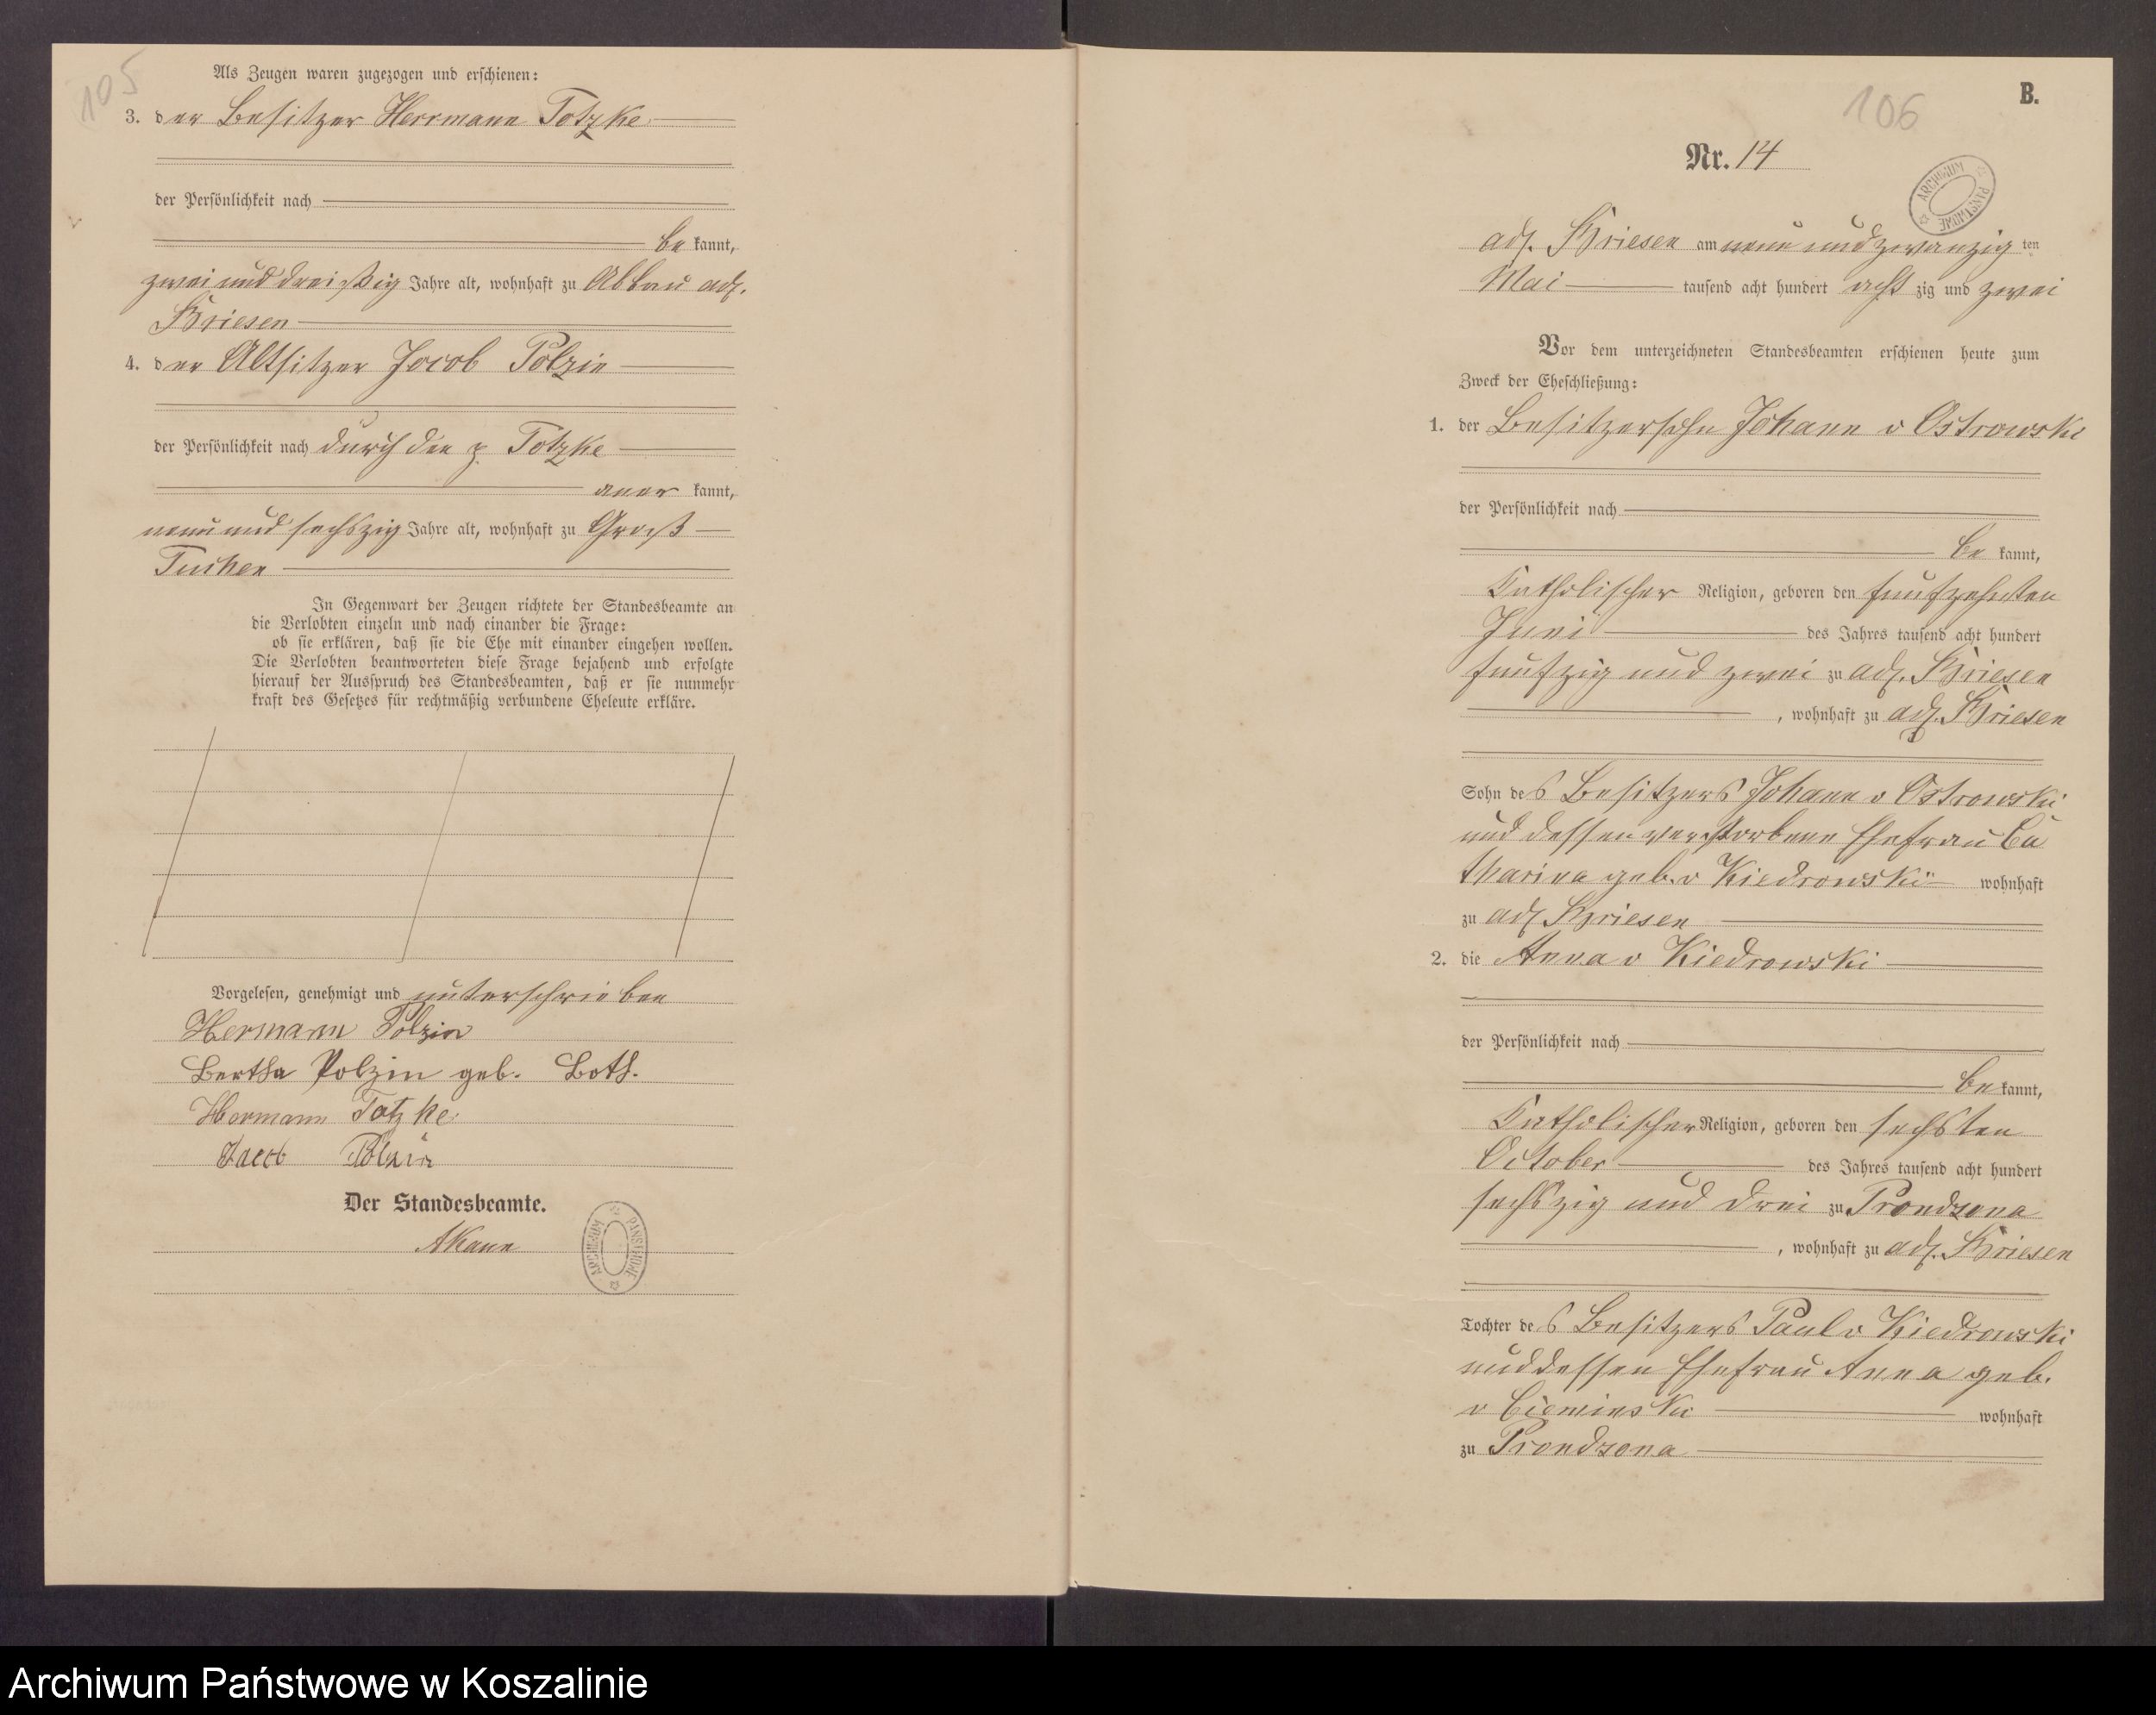 105
Als Zeugen waren zugezogen und erschienen:
3. der Besitzer Herrmann Totzke
der Persönlichkeit nach
be kannt,
zwei und dreißig Jahre alt, wohnhaft zu Abbau adl.
Briesen
4. der Altsitzer Jacob Polzin
der Persönlichkeit nach durch den p. Totzke
aner kannt,
neun und sechszig Jahre alt, wohnhaft zu Groß
Tuchen
In Gegenwart der Zeugen richtete der Standesbeamte an
die Verlobten einzeln und nach einander die Frage:
ob sie erklären, daß sie die Ehe mit einander eingehen wollen.
Die Verlobten beantworteten diese Frage bejahend und erfolgte
hierauf der Ausspruch des Standesbeamten, daß er sie nunmehr
kraft des Gesetzes für rechtmäßig verbundene Eheleute erkläre.
Vorgelesen, genehmigt und unterschrieben
Hermann Polzin
Bertha Polzin geb. Both.
Hermann Totzke
Jacob Polzin
Der Standesbeamte.
ARCHIWUM PAŃSTWOWE
106
B.
Nr. 14
ARCHIWUM PAŃSTWOWE
adl. Briesen am neun und zwanzig ten
Mai tausend acht hundert acht zig und zwei
Vor dem unterzeichneten Standesbeamten erschienen heute zum
Zweck der Eheschließung:
1. der Besitzersohn Johann v Ostrowski
der Persönlichkeit nach
be kannt,
Katholischer Religion, geboren den funfzehnten
Juni des Jahres tausend acht hundert
funfzig und zwei zu adl. Briesen
, wohnhaft zu adl. Briesen
Sohn des Besitzers Johann v Ostrowski
und dessen verstorbene Ehefrau Ca
tharina geb. v Kiedrowski wohnhaft
zu adl Briesen
2. die Anna v Kiedrowski
der Persönlichkeit nach
be kannt,
Katholischer Religion, geboren den sechsten
October des Jahres tausend acht hundert
sechszig und drei zu Prondzona
, wohnhaft zu adl. Briesen
Tochter des Besitzers Paul v Kiedrowski
und dessen Ehefrau Anna geb.
v Cieminski wohnhaft
zu Prondzona
Archiwum Państwowe w Koszalinie